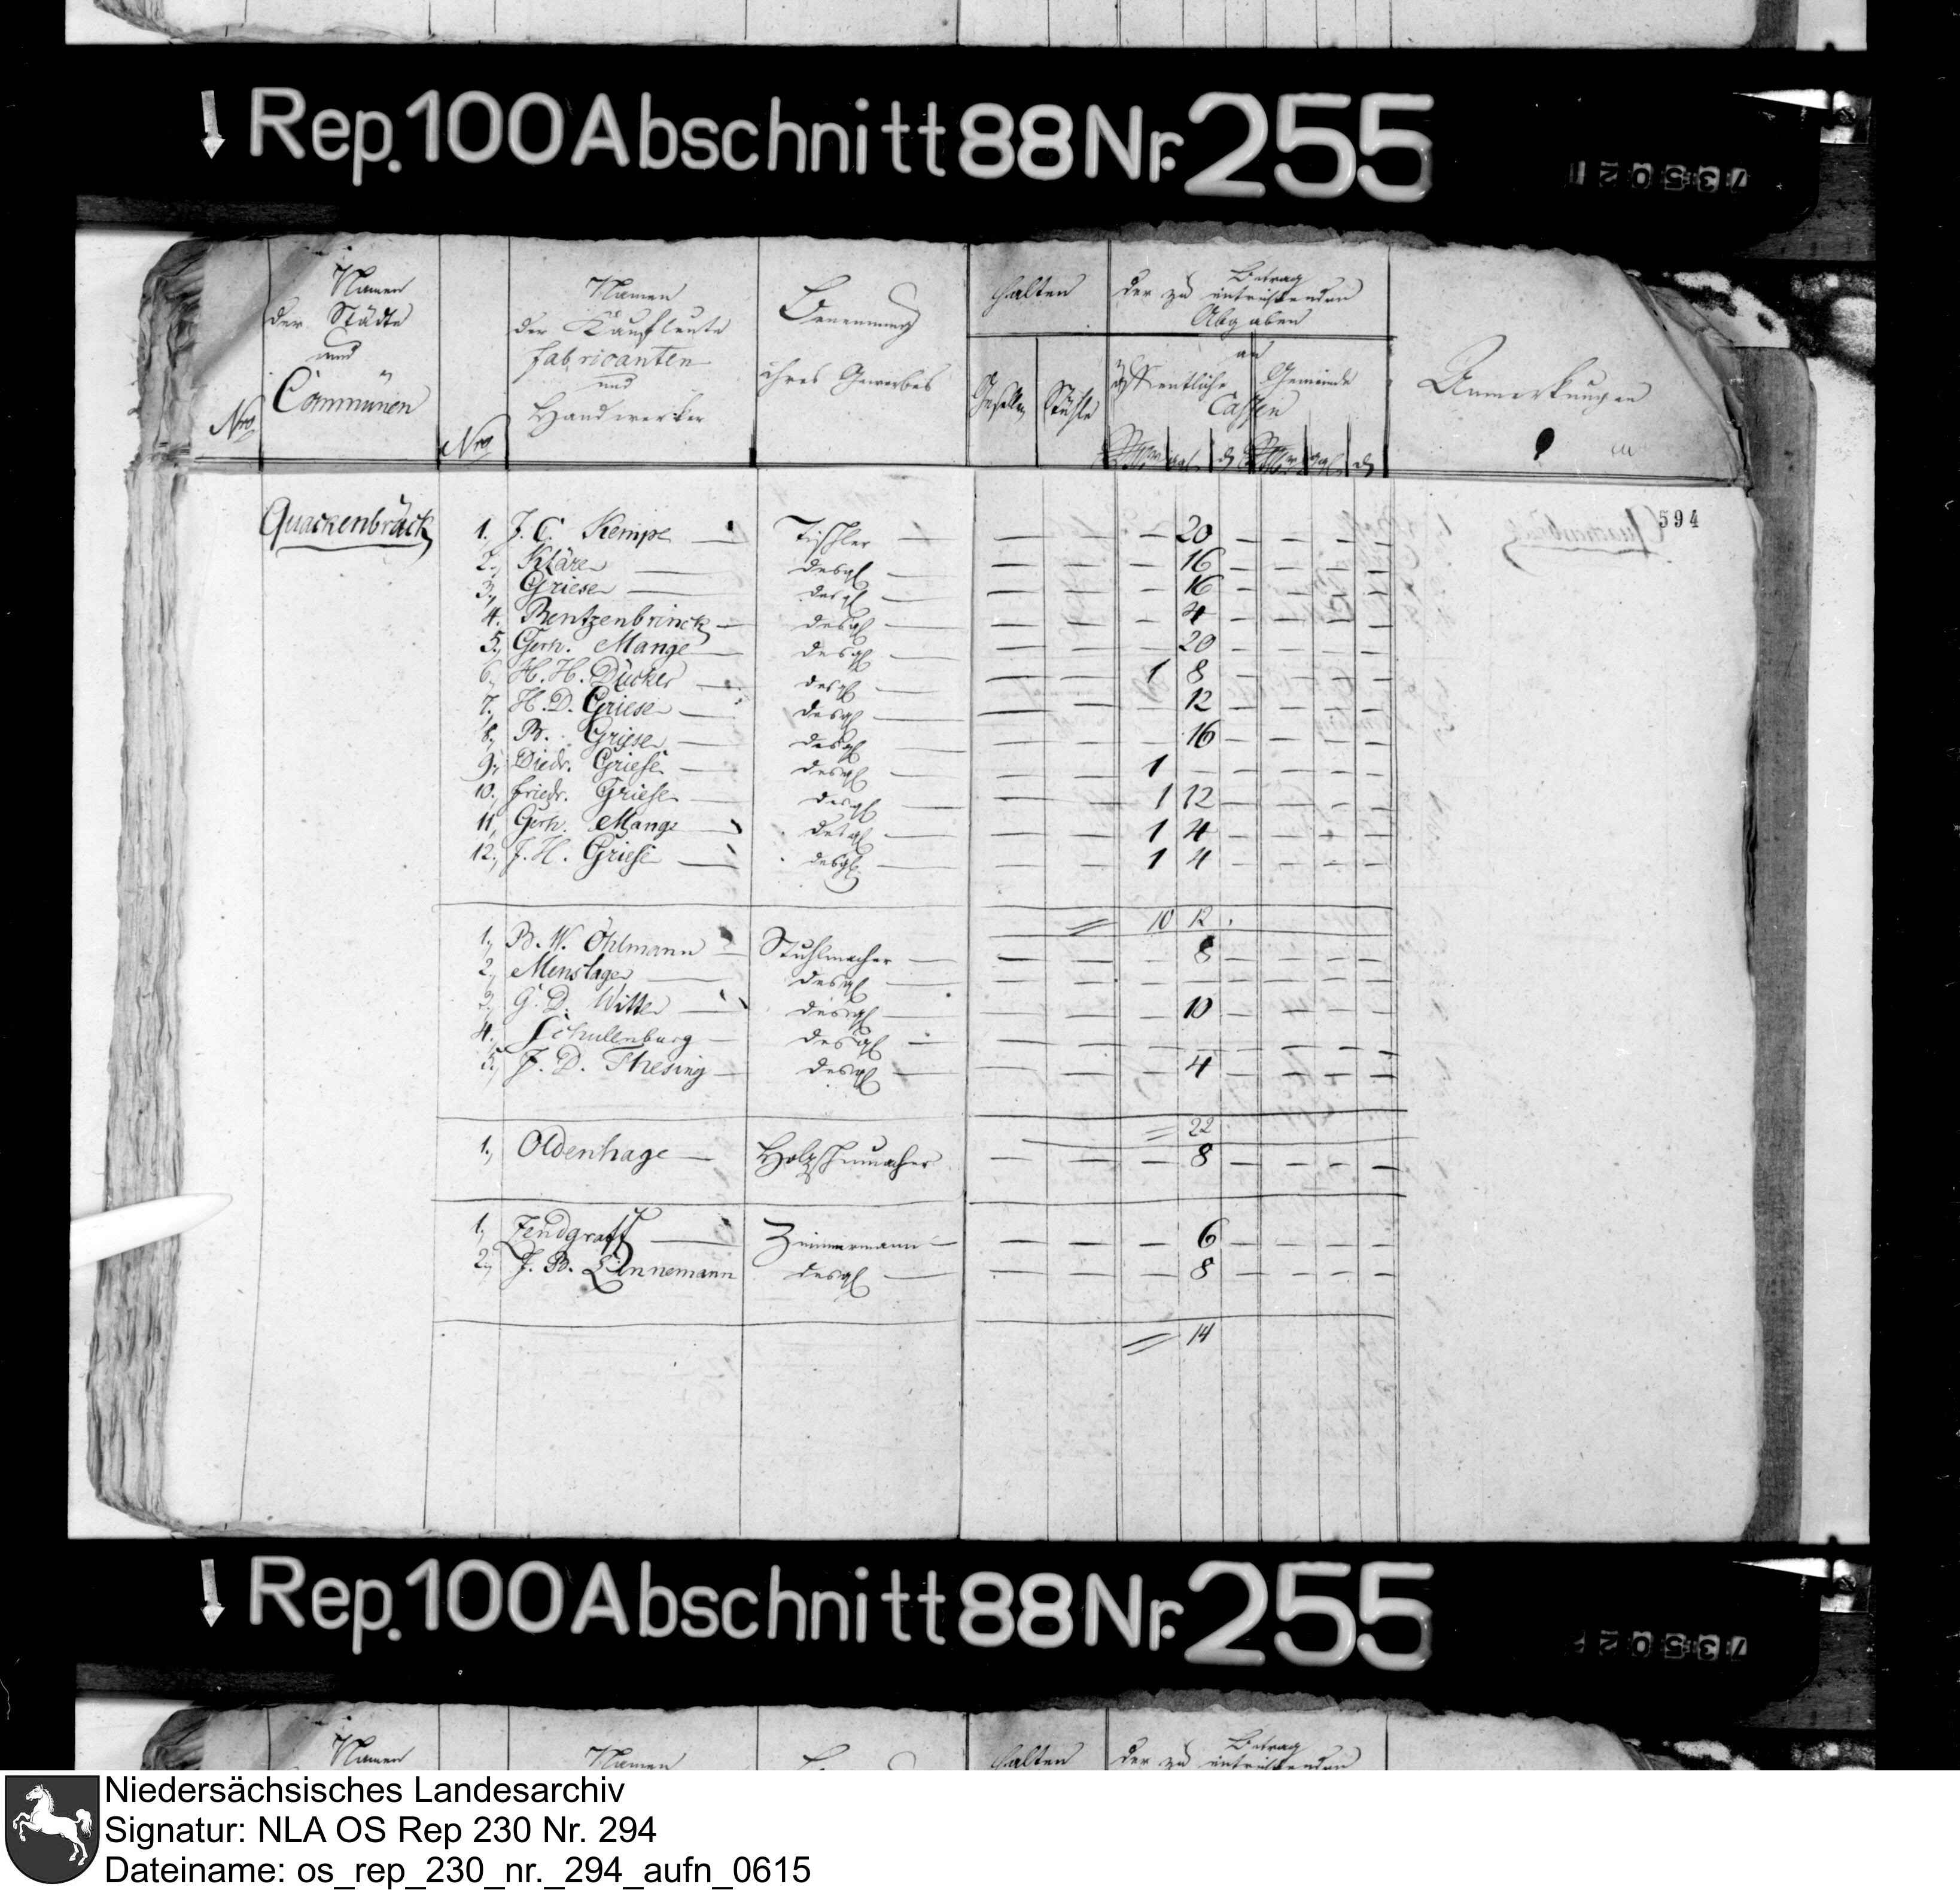 Rep. 100 Abschnitt 88 Nr. 255
Namen der Städte und Communen
Nro
Namen der Kaufleute Fabricanten und Handwerker
Benennung ihres Gewerbes
halten
Gesellen Stühle
Betrag der zu entrichtenden Abgaben
an
öffentliche Gemeinde
Cassen
Anmerkungen
594
Quackenbrück
1. J. C. Kempe — Tischler — — — — 20 — — — —
2., Kläre — desgl — — — — 16 — — — —
3., Griese — desgl — — — — 16 — — — —
4. Rentzenbrinck — desgl — — — — 4 — — — —
5., Gerh. Mange — desgl — — — — 20 — — — —
6., H. H. Dücker — desgl — — — 1 8 — — — —
7., H. D. Griese — desgl — — — — 12 — — — —
8., B. Griese — desgl — — — — 16 — — — —
9., Diedr. Griese — desgl — — — 1 — — — — —
10., Friedr. Griese — desgl — — — 1 12 — — — —
11, Gerh. Mange — desgl — — — 1 4 — — — —
12., J. H. Griese — desgl — — — 1 4 — — — —
10 12
1., B. W. Öhlmann — Stuhlmacher — — — — 8 — — — —
2., Menslage — desgl — — — — — — — — —
3., G. D. Witte — desgl — — — — 10 — — — —
4., Schulenburg — desgl — — — — — — — — —
5., J. D. Thesing — desgl — — — — 4 — — — —
22
1., Oldenhage — Holzschumacher — — — 8 — — — —
1., Zendgraff — Zimmermann — — — — 6 — — — —
2., J. B. Linnemann desgl — — — — 8 — — — —
14
Rep. 100 Abschnitt 88 Nr. 255
Namen
Namen
halten
Betrag
der zu entrichtenden
Niedersächsisches Landesarchiv
Signatur: NLA OS Rep 230 Nr. 294
Dateiname: os_rep_230_nr._294_aufn_0615